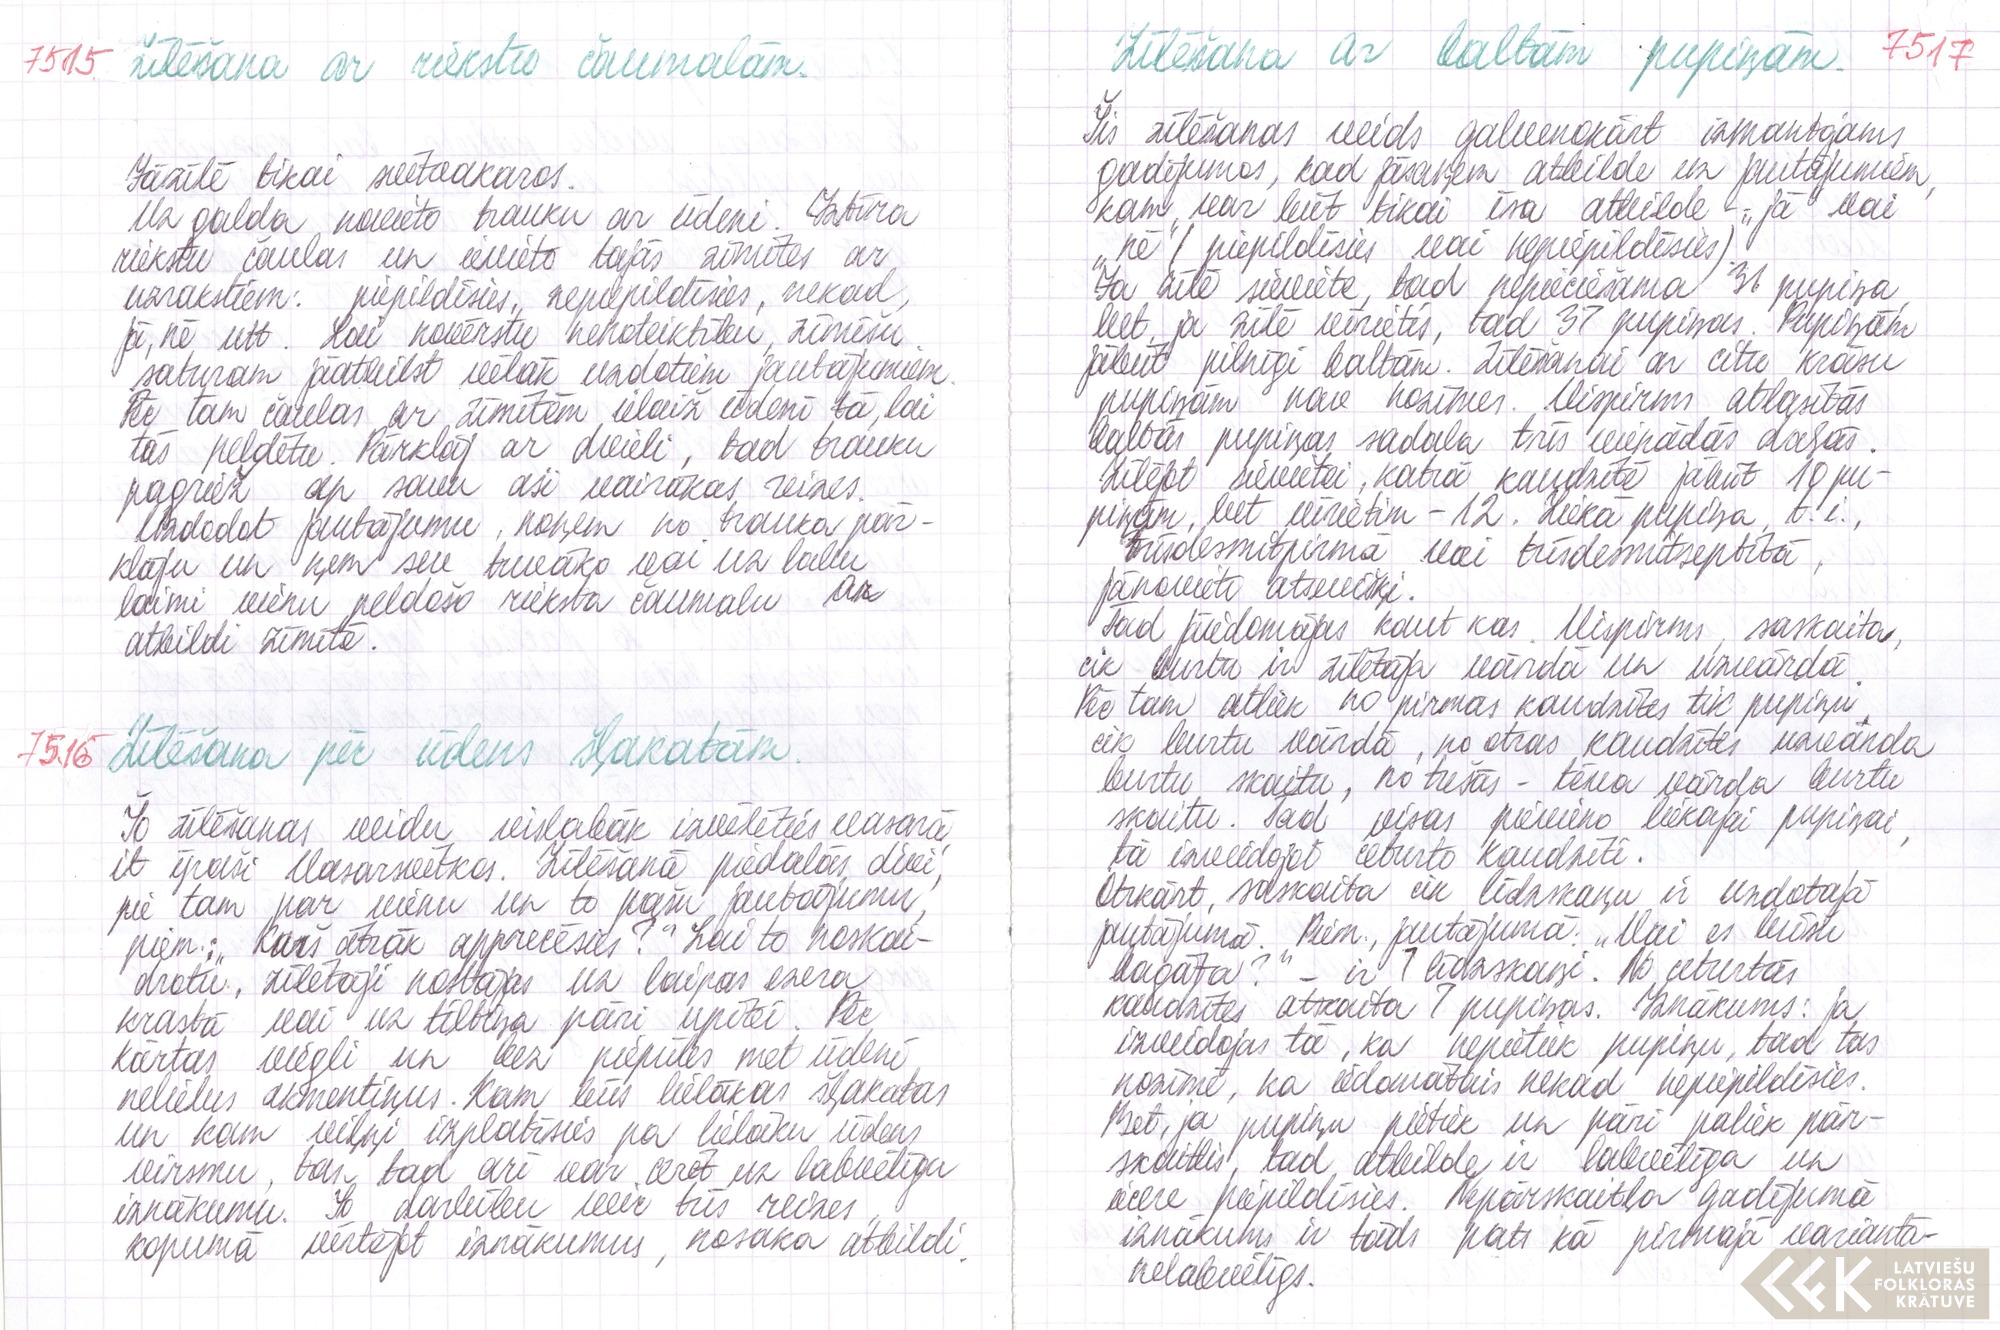 7515 Zīlēšana ar riekstu čaumalām.
Jāzīlē tikai svētvakaros.
Uz galda novieto trauku ar ūdeni. Iztīra
riekstu čaulas un ievieto tajās zīmītes ar
uzrakstiem: piepildīsies, nepiepildīsies, nekad,
jā, nē utt. Lai novērstu nenoteiktību, zīmīšu
saturam jāatbilst vēlāk uzdotiem jautājumiem.
Pēc tam čaulas ar zīmītēm ielaiž ūdenī tā, lai
tās peldētu. Pārklāj ar dvieli, tad trauku
pagriež ap savu asi vairākas reizes.
Uzdodot jautājumu, noņem no trauka pār-
klāju un ņem sev tuvāko vai uz labu
laimi vienu peldošo rieksta čaumalu ar
atbildi zīmītē.
7516 Zīlēšana pēc ūdens šļakatām.
Šo zīlēšanas veidu vislabāk izvēlēties vasarā,
it īpaši Vasarsvētkos. Zīlēšanā piedalās divi,
pie tam par vienu un to pašu jautājumu,
piem.: „Kurš ātrāk apprecēsies?" Lai to noskai-
drotu, zīlētāji nostājas uz laipas ezera
krastā vai uz tiltiņa pāri upītei. Pēc
kārtas viegli un bez piepūles met ūdenī
nelielus akmentiņus. Kam būs lielākas šļakatas
un kam viļņi izplatīsies pa lielāku ūdens
virsmu, tas tad arī var cerēt uz labvēlīgu
iznākumu. Šo darbību veic trīs reizes,
kopumā vērtējot iznākumus, nosaka atbildi.
Zīlēšana ar baltām pupiņām. 7517
Šis zīlēšanas veids galvenokārt izmantojams
gadījumos, kad jāsaņem atbilde uz jautājumiem,
kam var būt tikai īsa atbilde - „jā" vai
„nē" (piepildīsies vai nepiepildīsies).
Ja zīlē sieviete, tad nepieciešama 31 pupiņa,
bet, ja zīlē vīrietis, tad 37 pupiņas. Pupiņām
jābūt pilnīgi baltām. Zīlēšanai ar citu krāsu
pupiņām nav nozīmes. Vispirms atlasītās
baltās pupiņas sadala trīs vienādās daļās.
Zīlējot sievietei, katrā kaudzītē jābūt 10 pu-
piņām, bet vīrietim - 12. Liekā pupiņa, t.i.,
trīsdesmitpirmā vai trīsdesmitseptītā,
jānovieto atsevišķi.
Tad jāiedomājas kaut kas. Vispirms, saskaita,
cik burtu ir zīlētāja vārdā un uzvārdā.
Pēc tam atliek no pirmās kaudzītes tik pupiņu,
cik burtu vārdā, no otras kaudzītes uzvārda
burtu skaitu, no trešās - tēva vārda burtu
skaitu. Tad visas pievieno liekajai pupiņai,
tā izveidojot ceturto kaudzīti.
Otrkārt, saskaita cik līdzskaņu ir uzdotajā
jautājumā. Piem., jautājumā: „Vai es būšu
bagāta?" - ir 7 līdzskaņi. No ceturtās
kaudzītes atskaita 7 pupiņas. Iznākums: ja
izveidojas tā, ka nepietiek pupiņu, tad tas
nozīmē, ka iedomātais nekad nepiepildīsies.
Bet, ja pupiņu pietiek un pāri paliek pār-
skaitlis, tad atbilde ir labvēlīga un
iecere piepildīsies. Nepārskaitļa gadījumā
iznākums ir tāds pats kā pirmajā variantā -
nelabvēlīgs.
LATVIEŠU
FOLKLORAS
KRĀTUVE